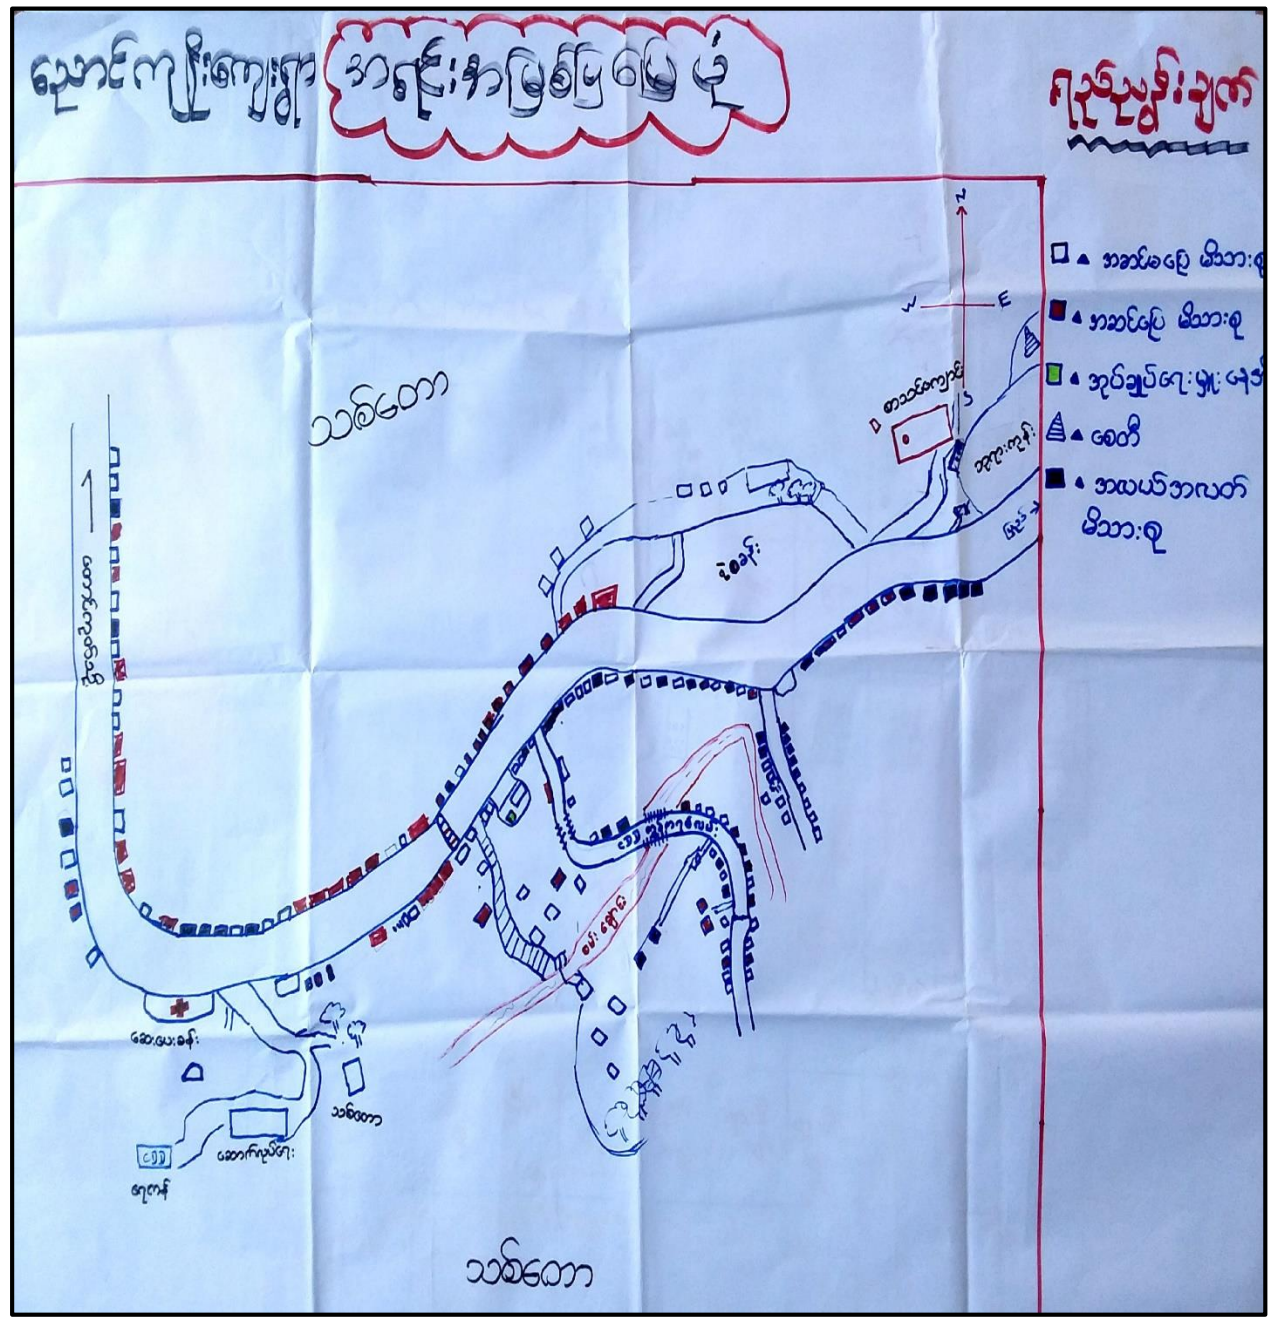 ညောင်ကျိုးကျေးရွာ အရင်းအမြစ်ပြမြေပုံ
ရည်ညွှန်းချက်
N
W
E
S
အဆင်မပြေ မိသားစု
အဆင်ပြေ မိသားစု
အုပ်ချုပ်ရေးမှူး
စေတီ
အလယ်အလတ်
မိသားစု
သစ်တော
စာသင်ကျောင်း
ဘုရားကုန်း
ရဲစခန်း
CDD
ဆေးပေးခန်း
သစ်တော
ဆောက်လုပ်ရေး
CDD
ရေကန်
သစ်တော